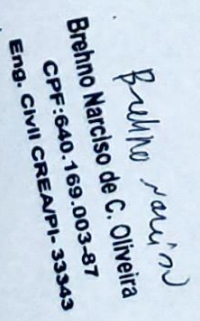 Brehno Narciso
Brehno Narciso de C. Oliveira
CPF:640.169.003-87
Eng. Civil CREA/PI- 33343